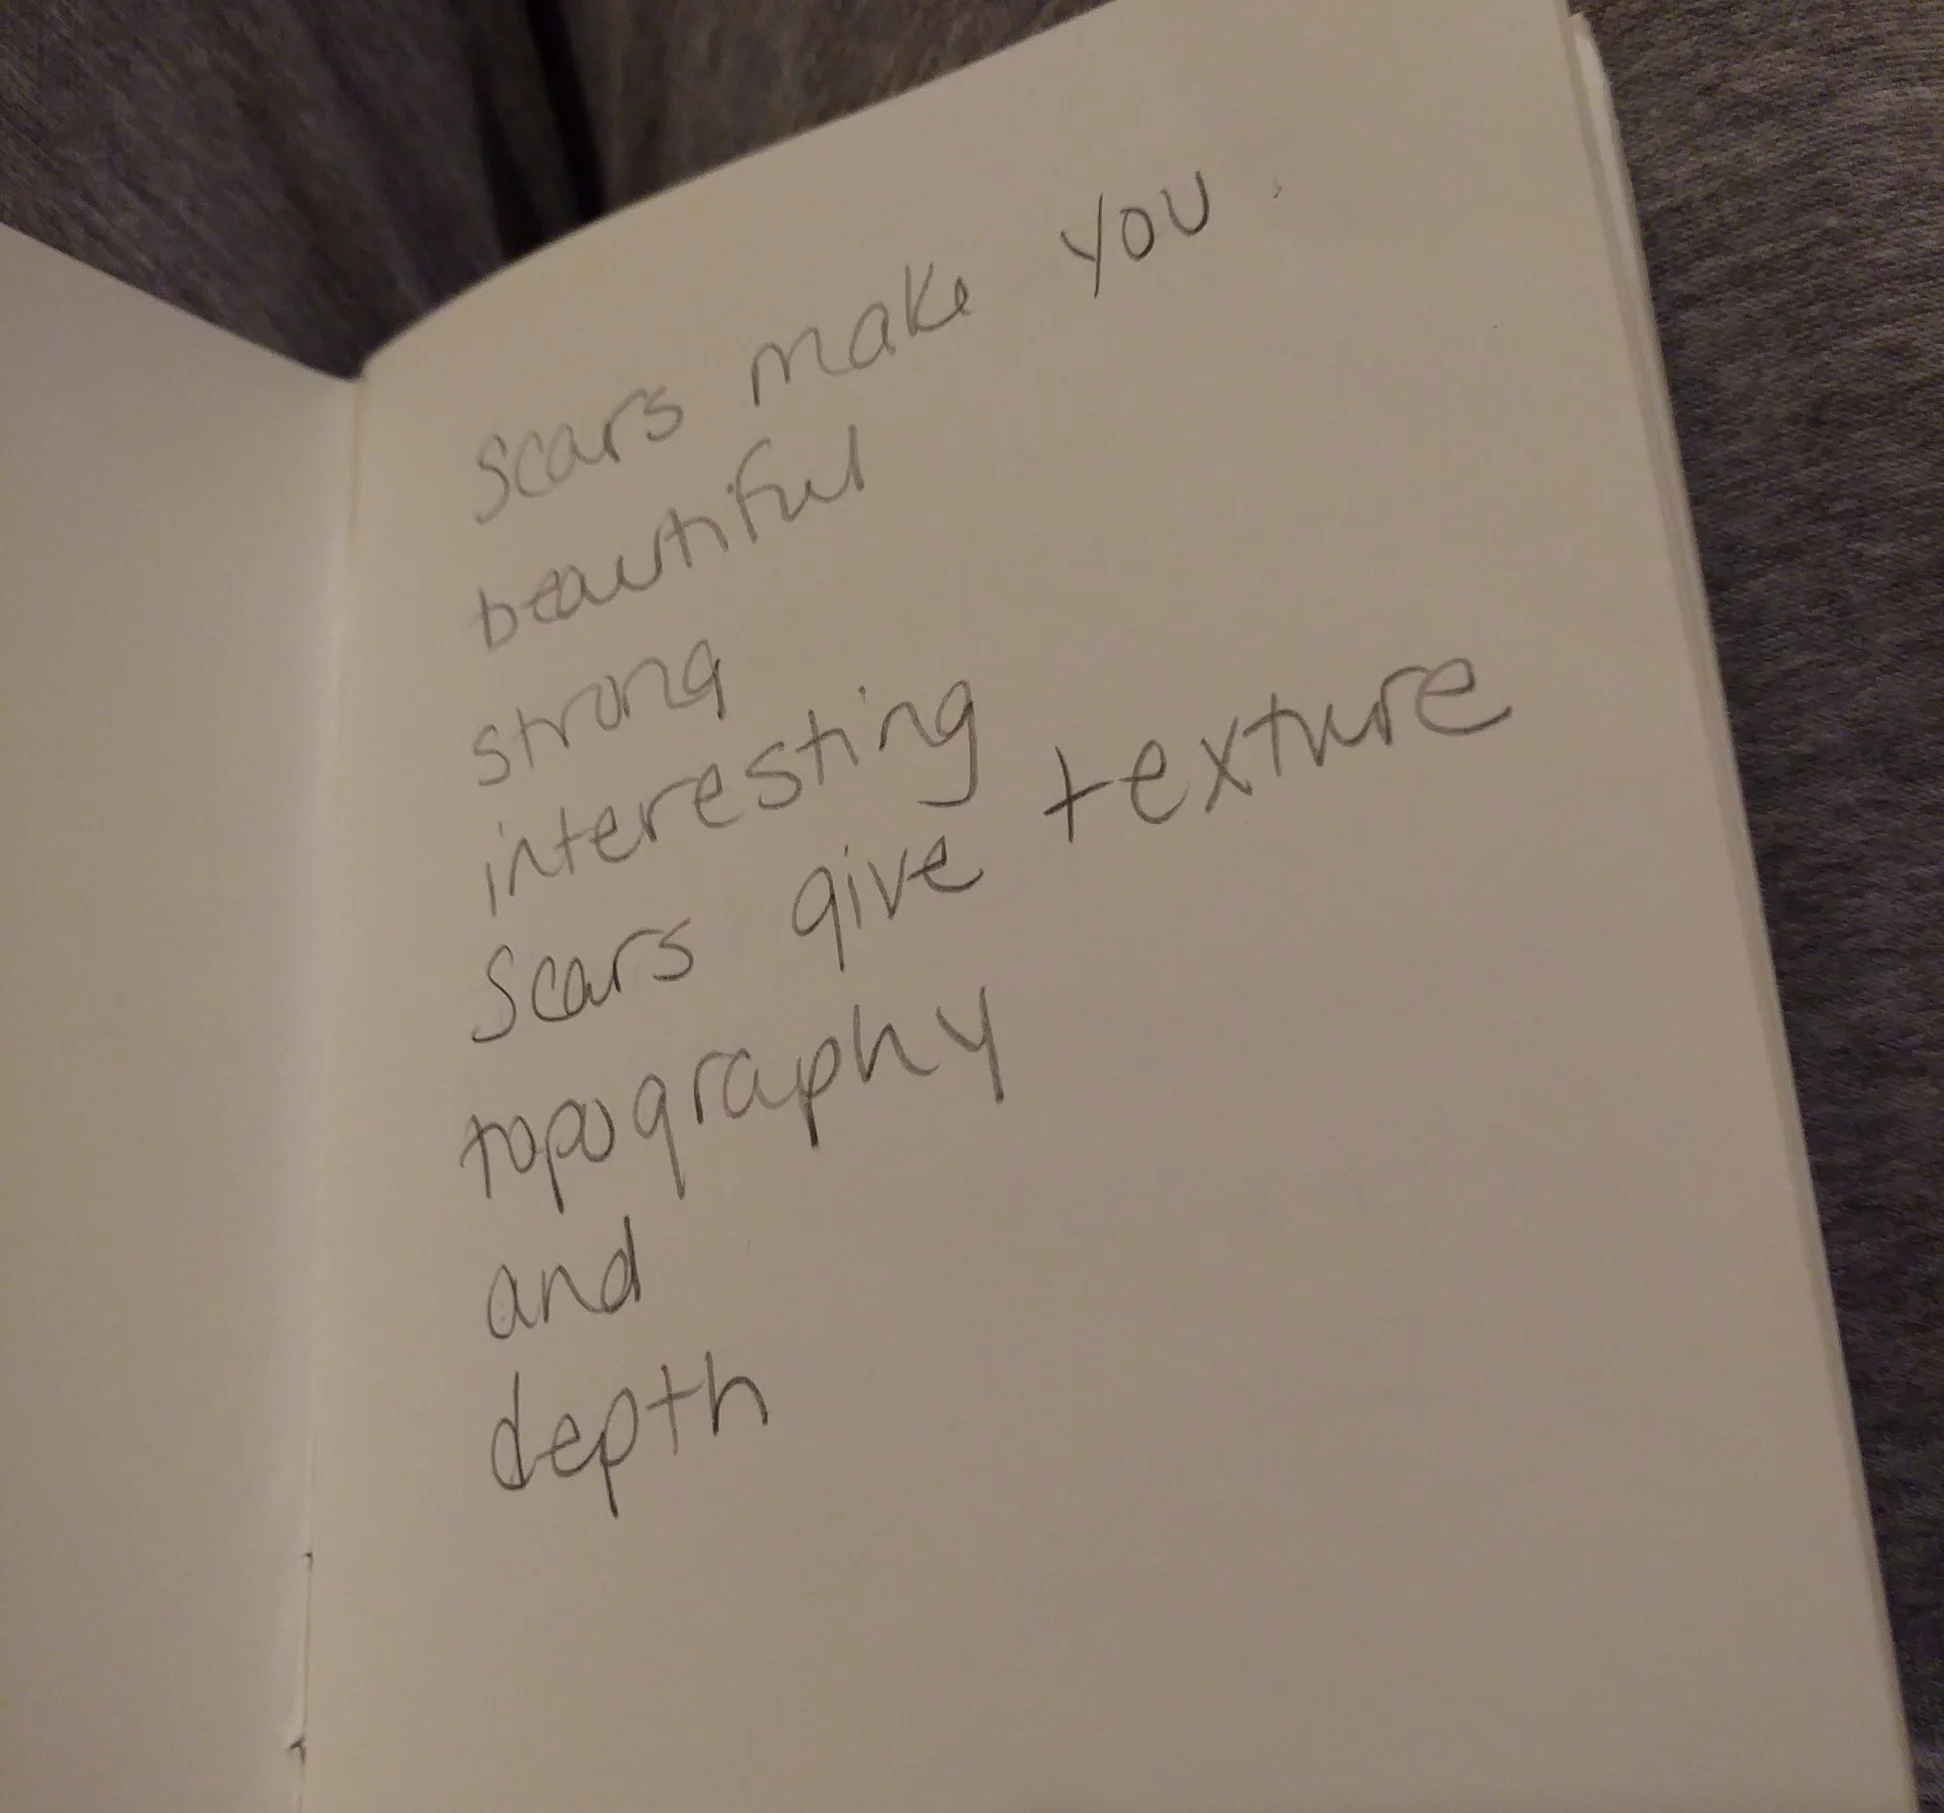 scars make you
beautiful
strong
interesting
Scars give texture
topography
and
depth